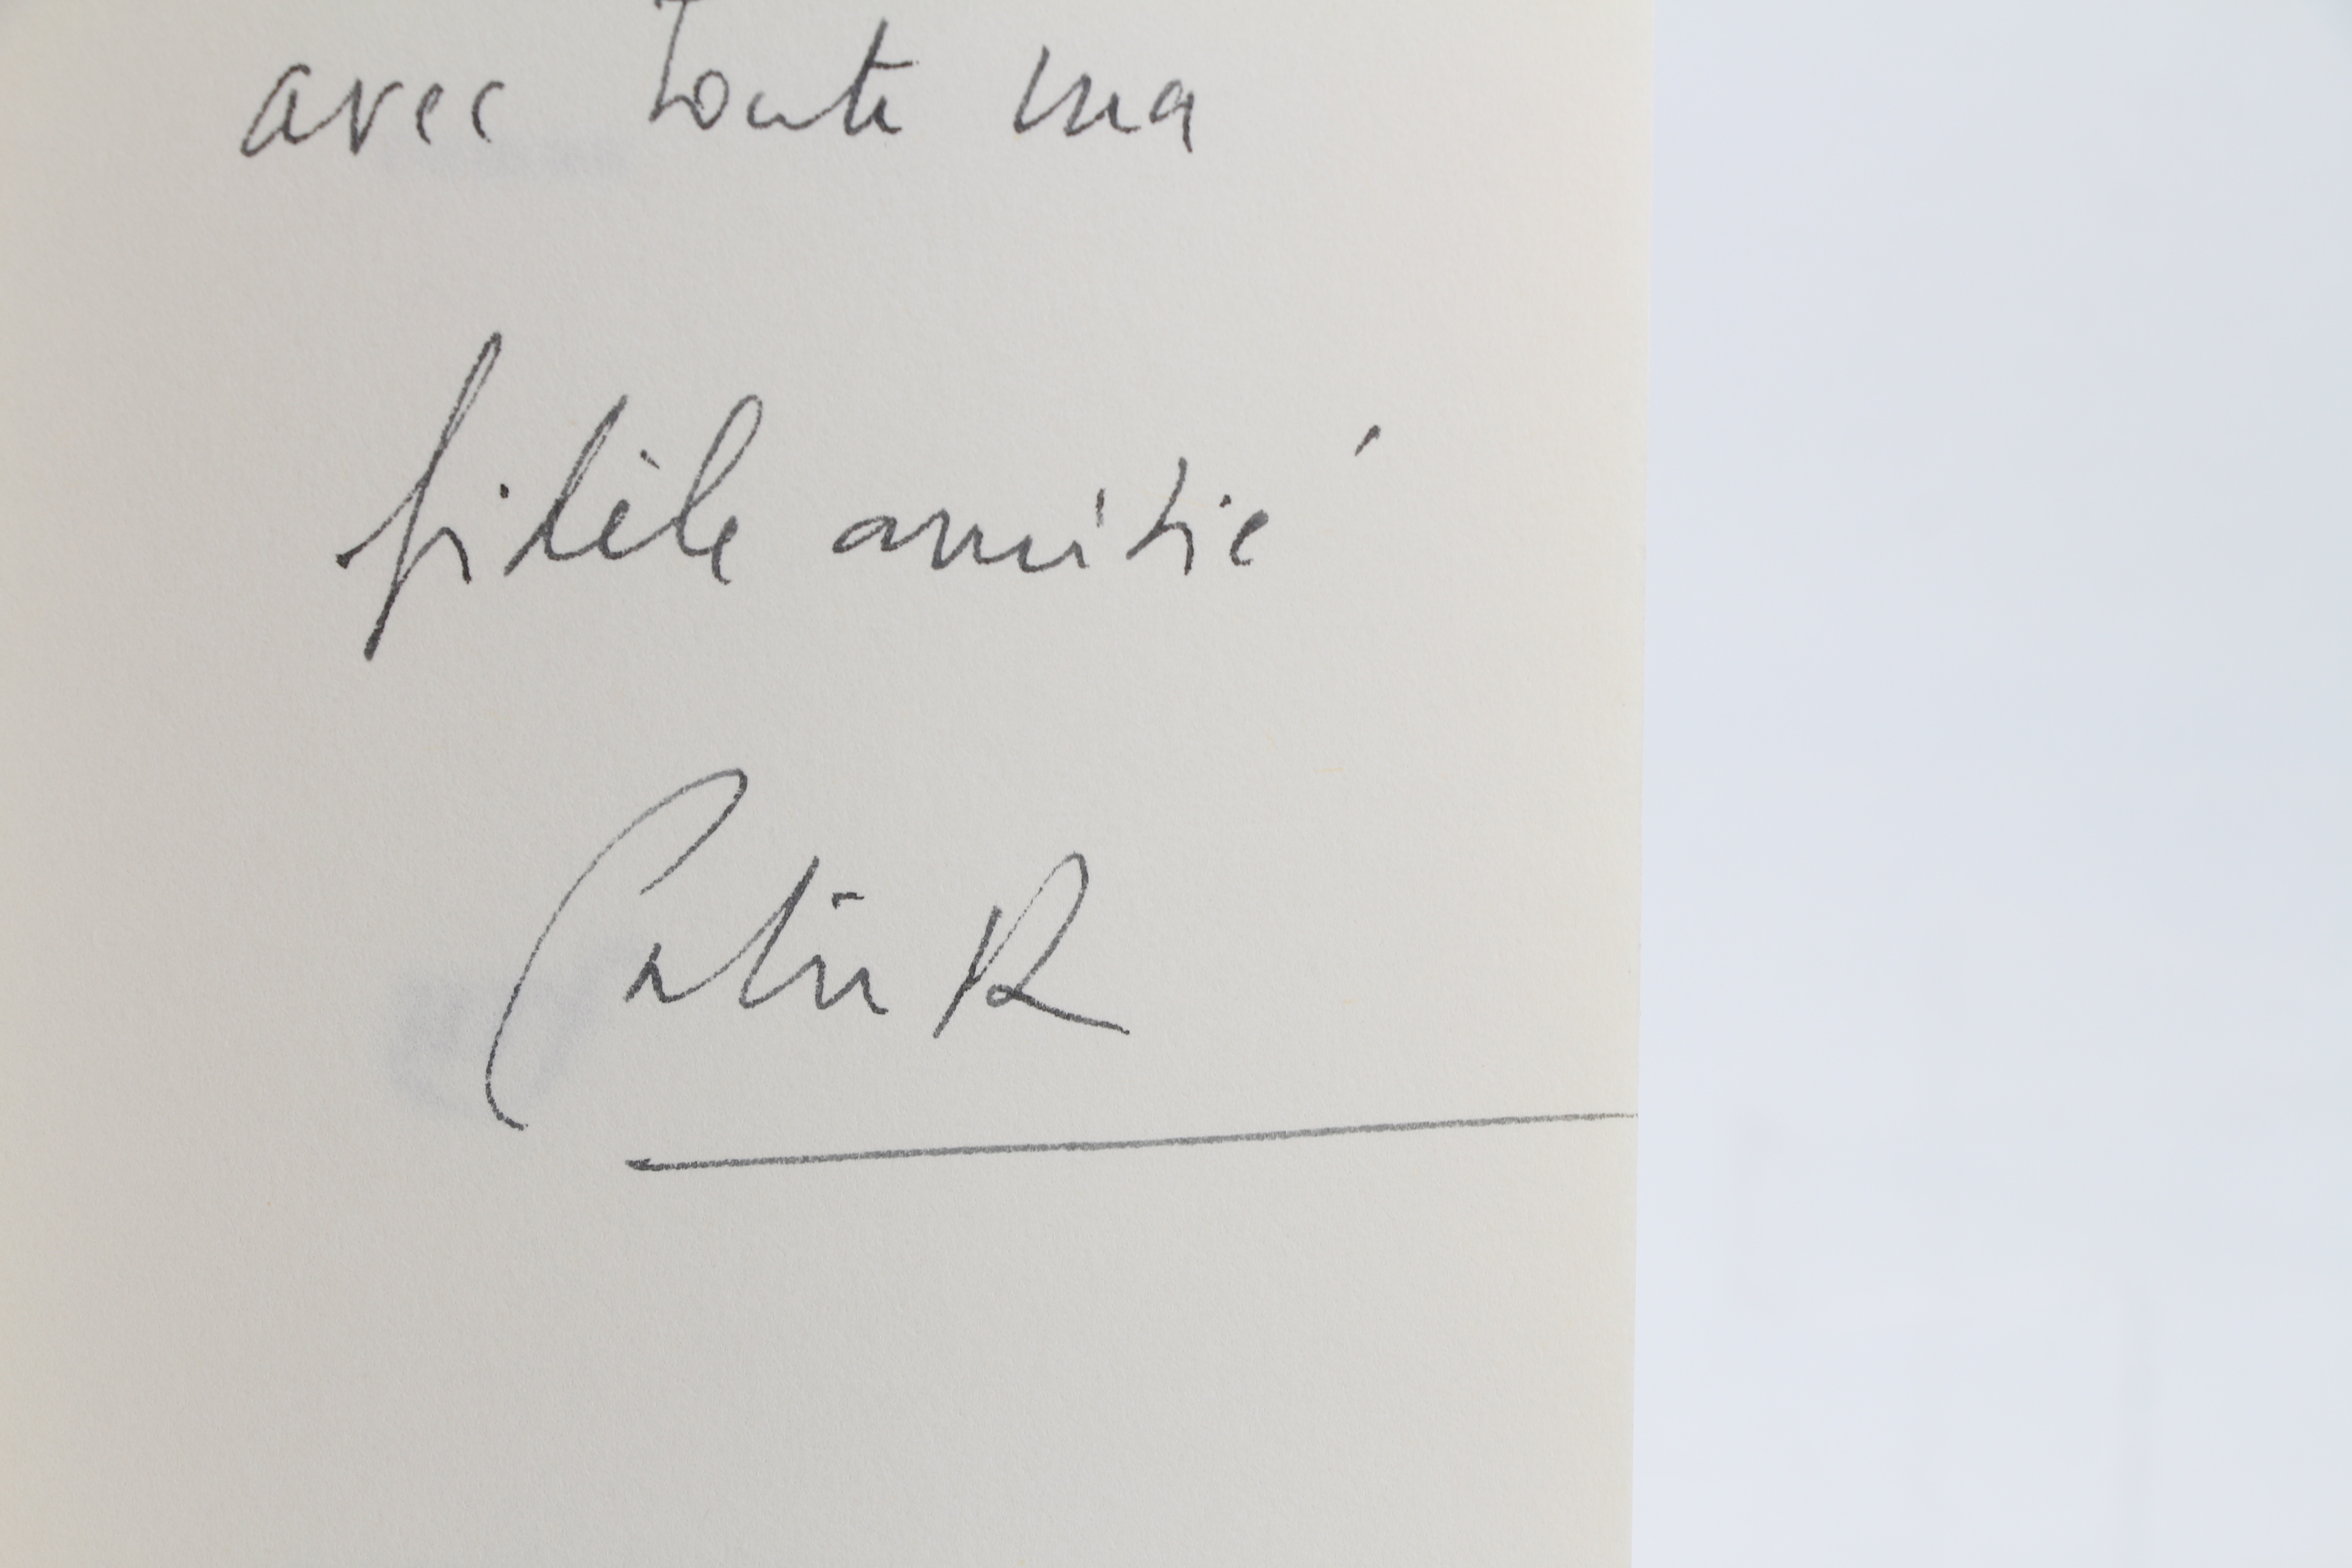 avec toute ma
fidèle amitié
Patrick